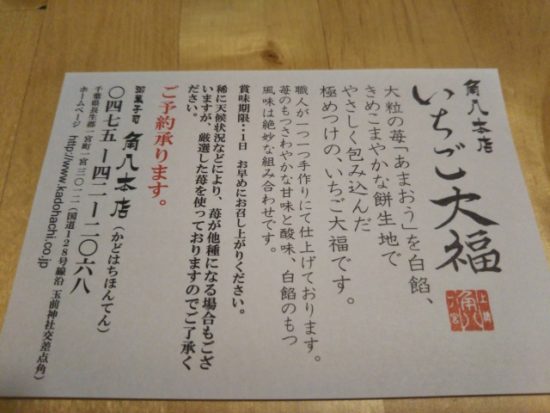 角八本店
いちご大福
大粒の苺「あまおう」を白餡、
きめこまやかな餅生地で
やさしく包み込んだ
極めつけの、いちご大福です。
職人が一つ一つ手作りにて仕上げております。
苺のもつさわやかな甘味と酸味、白餡のもつ
風味は絶妙な組み合わせです。
賞味期限：1日 お早めにお召し上がりください。
稀に天候状況などにより、苺が他種になる場合もござ
いますが、厳選した苺を使っておりますのでご了承く
ださい。
ご予約承ります。
御菓子司 角八本店（かどはちほんてん）
〇四七五ー四二ー二〇六八
千葉県長生郡一宮町一宮三〇一二（国道128号線沿 玉前神社交差点角）
ホームページ http://www.kadohachi.co.jp